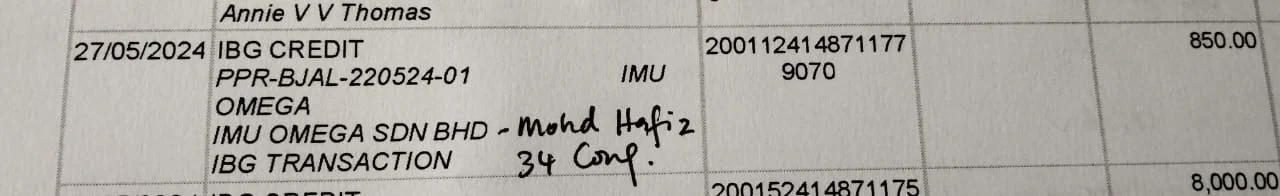 Annie V V Thomas
27/05/2024 IBG CREDIT 200112414871177 850.00
PPR-BJAL-220524-01 IMU 9070
OMEGA
IMU OMEGA SDN BHD - Mohd Hafiz
IBG TRANSACTION 34 Conf.
200152414871175 8,000.00